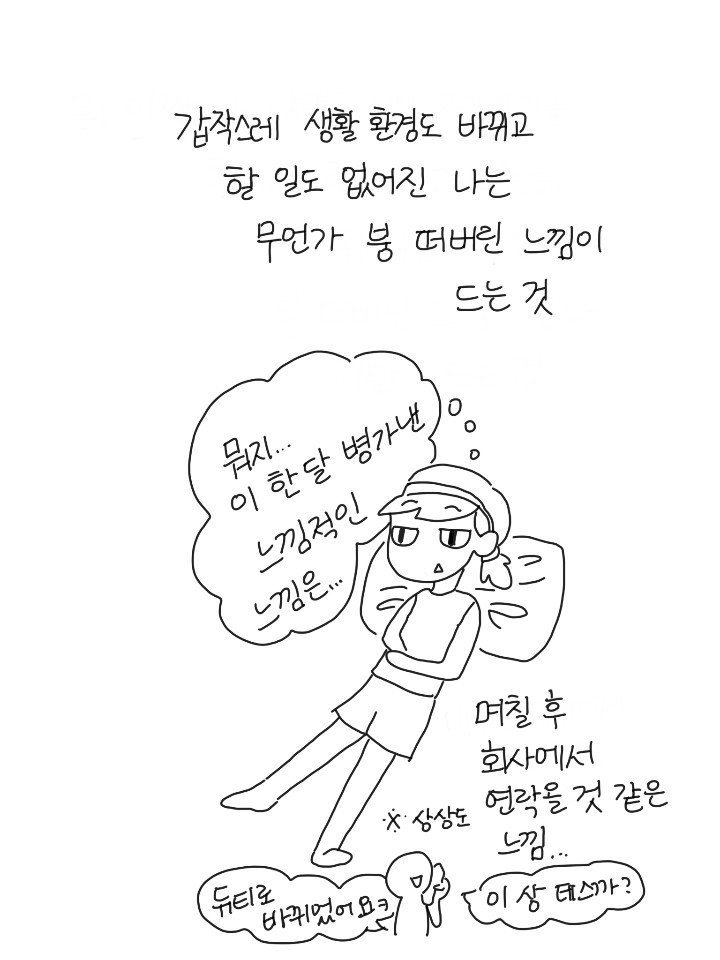 갑작스레 생활 환경도 바뀌고
할 일도 없어진 나는
무언가 붕 떠버린 느낌이
드는 것
뭐지...
이 한 달 병가낸
느낌적인
느낌은...
며칠 후
회사에서
연락올 것 같은
느낌...
※ 상상도
듀티로
바뀌었어요ㅋ
이상 테스까?